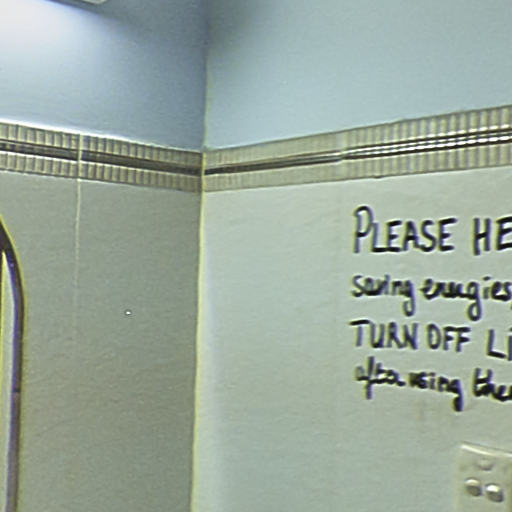 PLEASE HE
saving energies,
TURN OFF Li
after using the